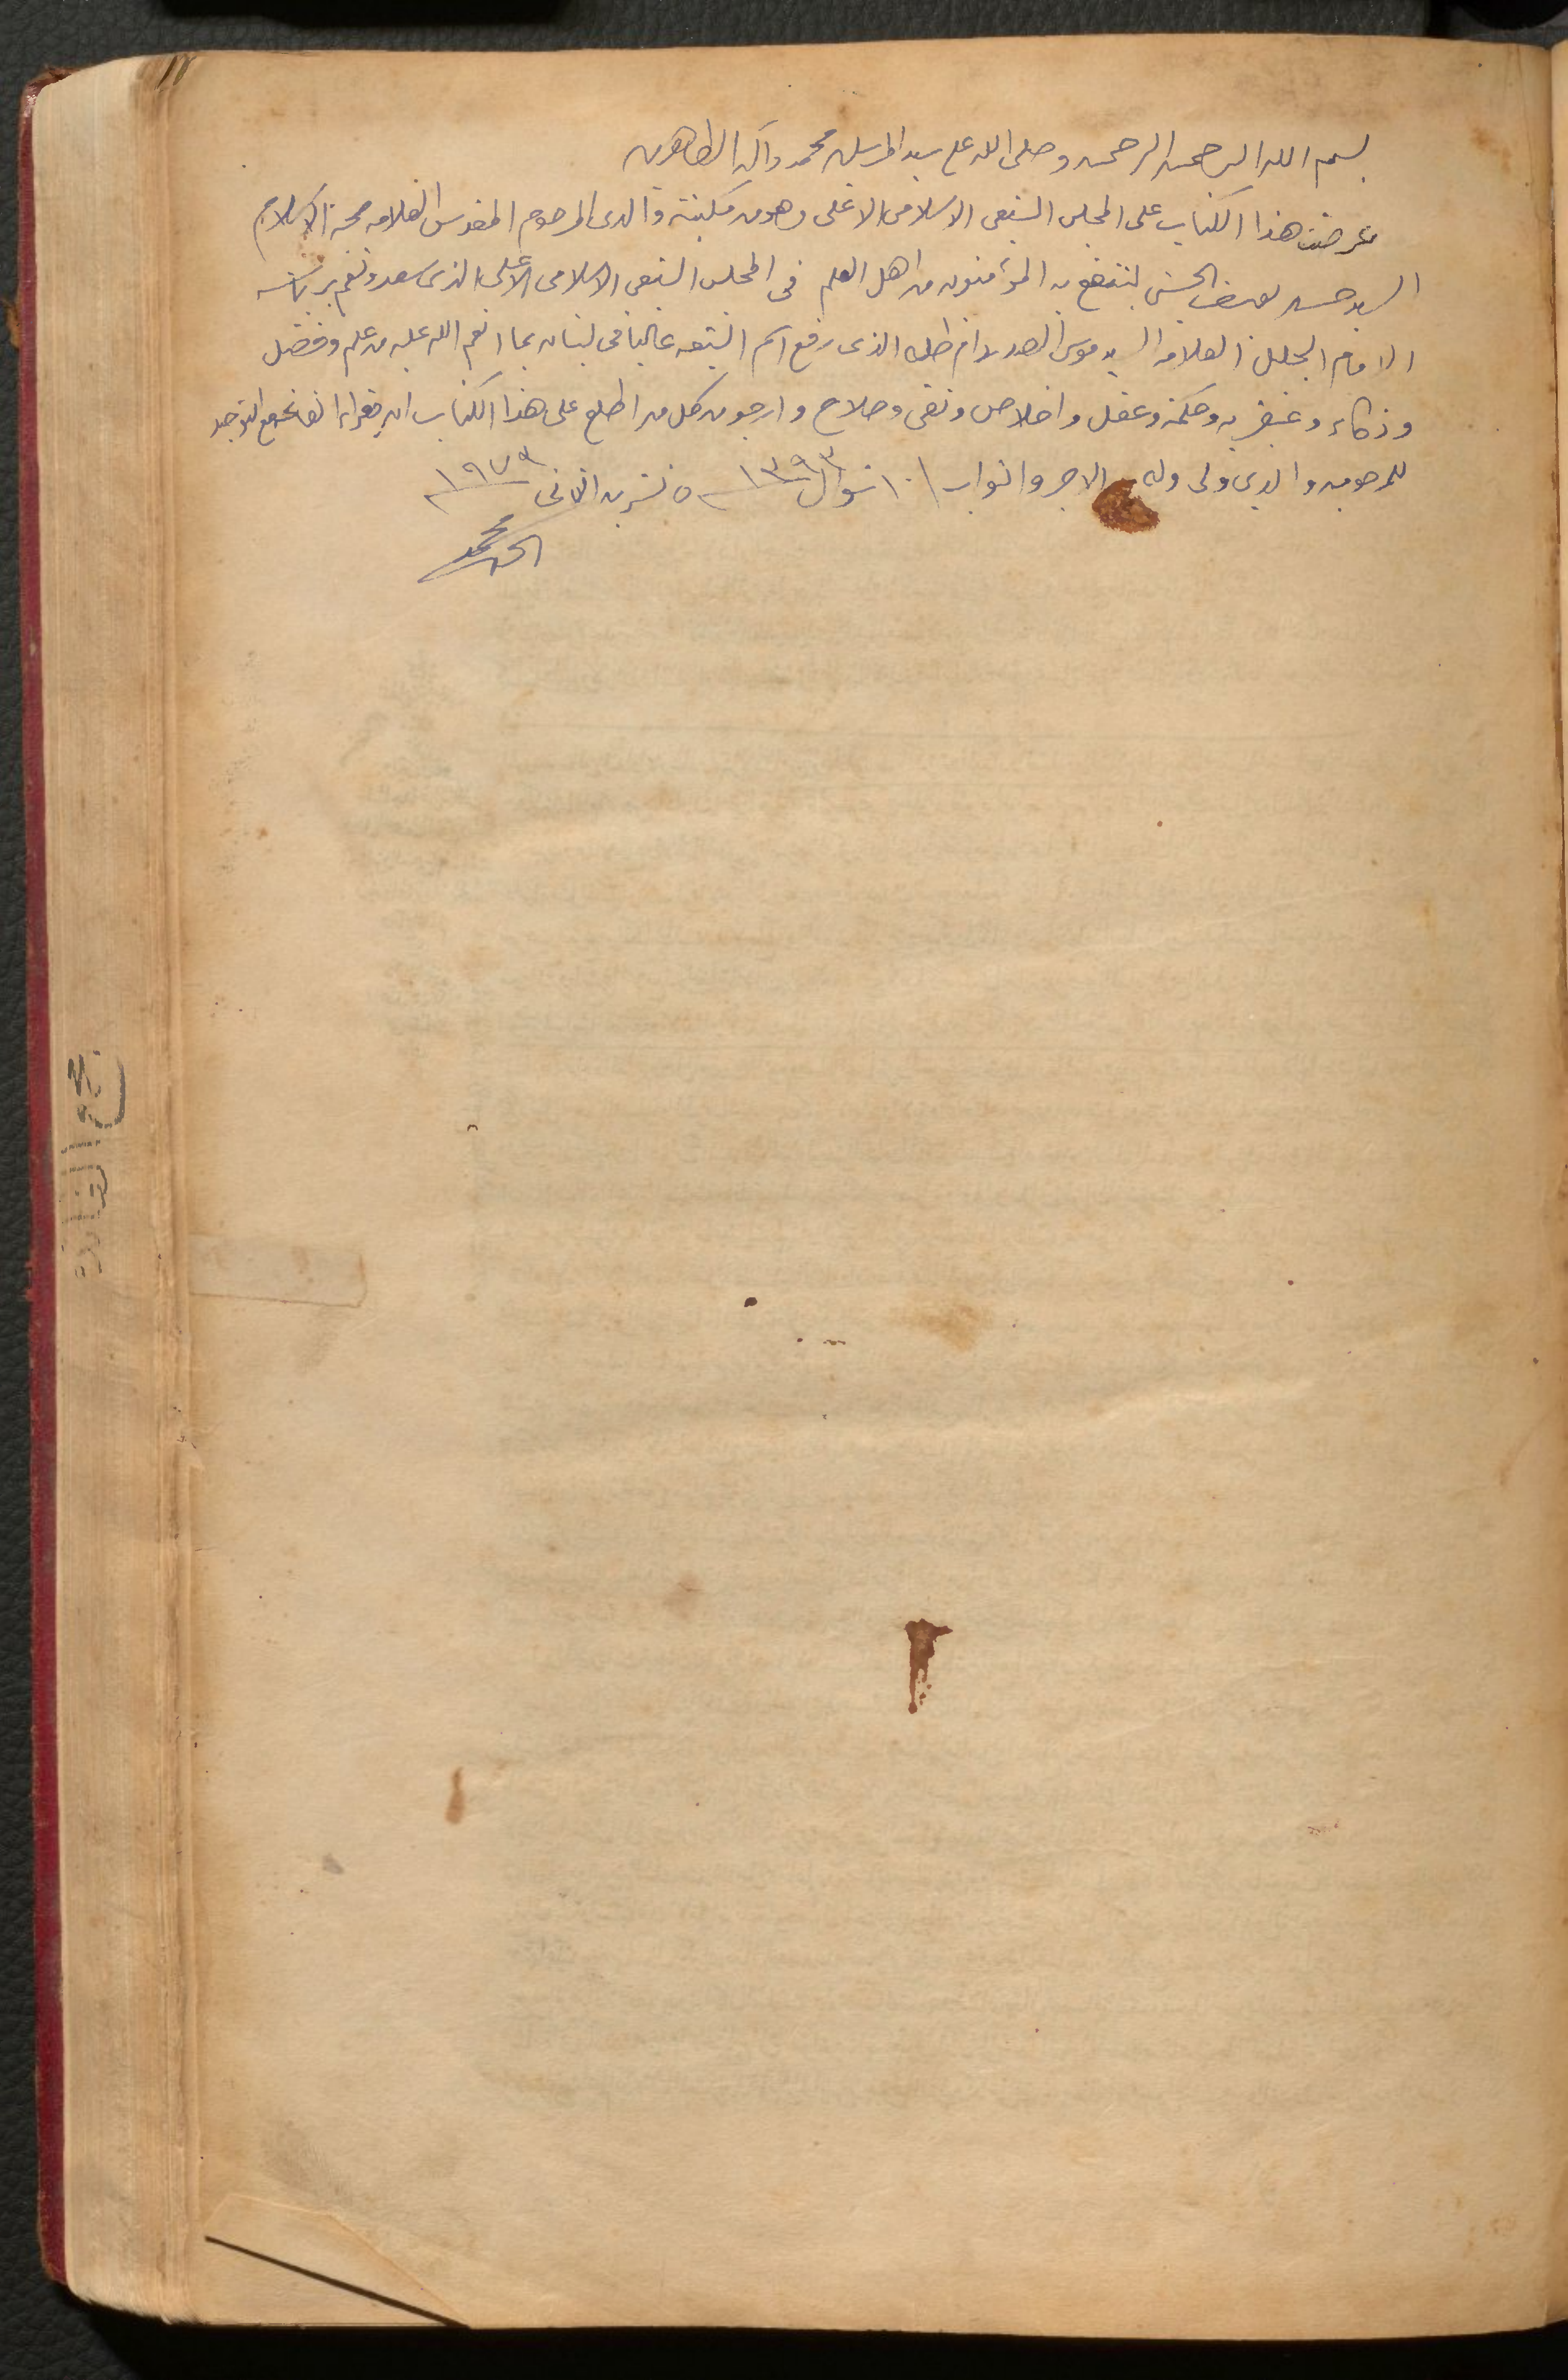 بسم الله الرحمن الرحيم وصلى الله على سيد المرسلين محمد وآله الطاهرين
عرضت هذا الكتاب على المجلس الشيعي الاسلامي الاعلى وهو من مكتبة والدي المرحوم المقدس العلامه حجة الاسلام
السيد حسن يوسف الحسني لينتفع به المؤمنون من اهل العلم في المجلس الشيعي الاسلامي الاعلى الذي سعد ونعم برياسة
الامام الجليل العلامة السيد موسى الصدر دام ظله الذي رفع اسم الشيعه عاليا في لبنان بما انعم الله عليه من علم وفضل
وذكاء وعبقريه وحكمة وعقل واخلاص وتقى وصلاح وارجو من كل من اطلع على هذا الكتاب ان يقراء الفاتحه مع التوحيد
للمرحوم والدي ولي وله الاجر والثواب ١٠ شوال ١٣٩٣ ٥ تشرين الثاني ١٩٧٣
محمد